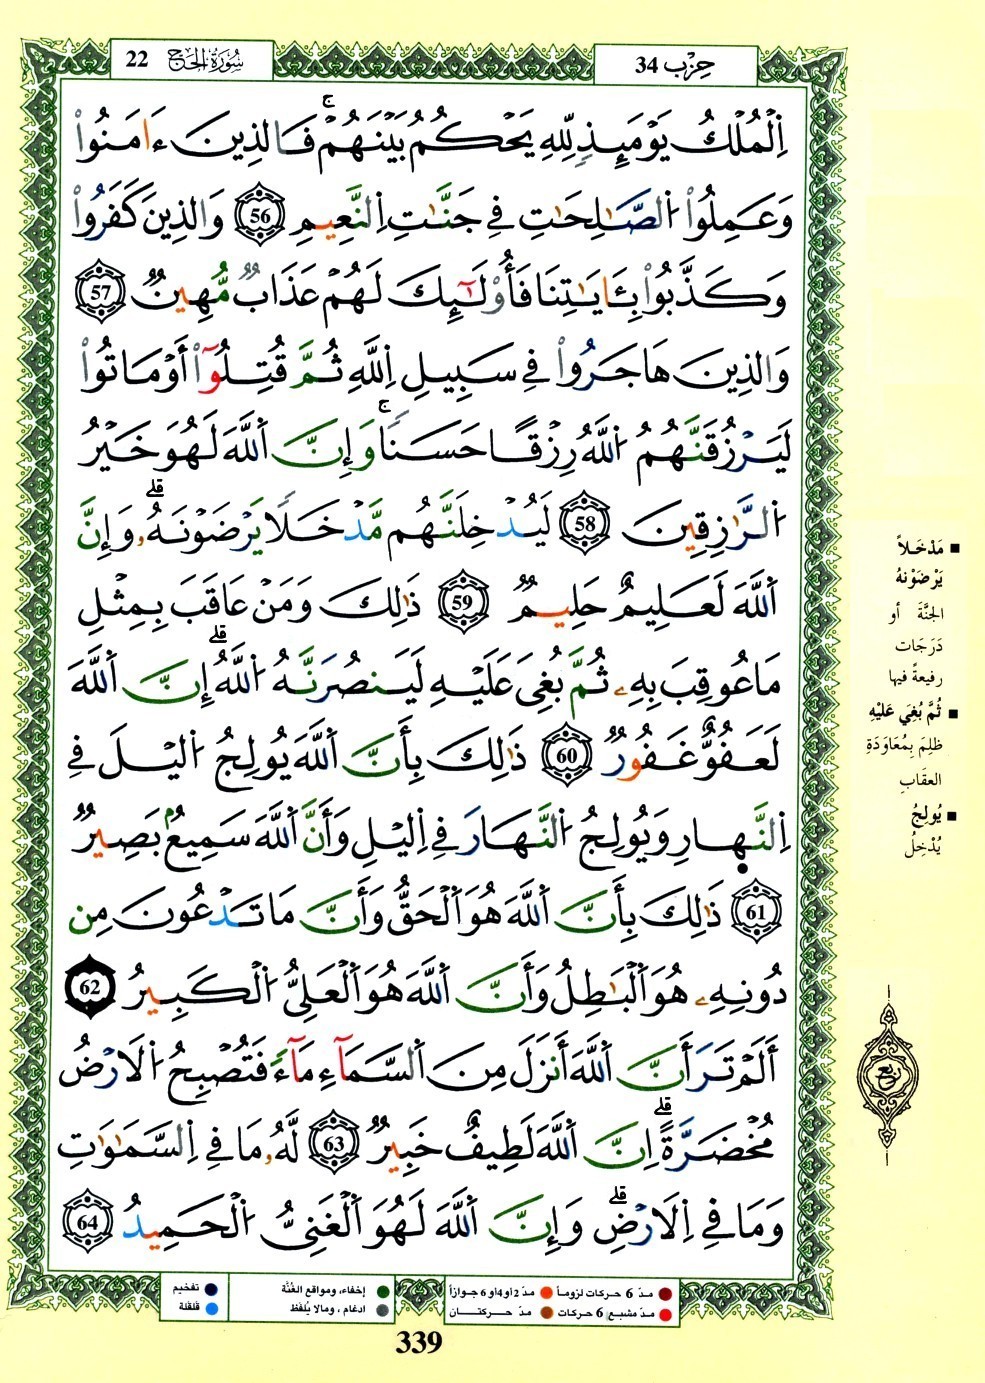 سُورَةُ الحَجّ 22
حِزْب 34
اِ۬لْمُلْكُ يَوْمَئِذٖ لِّلهِ يَحْكُمُ بَيْنَهُمْۚ فَالذِينَ ءَامَنُواْ
وَعَمِلُواْ اُ۬لصَّٰلِحَٰتِ فِے جَنَّٰتِ اِ۬لنَّعِيمِ 56 وَالذِينَ كَفَرُواْ
وَكَذَّبُواْ بِـَٔايَٰتِنَا فَأُوْلَٰٓئِكَ لَهُمْ عَذَابٞ مُّهِينٞ 57
وَالذِينَ هَاجَرُواْ فِے سَبِيلِ اِ۬للَّهِ ثُمَّ قُتِلُوٓاْ أَوْ مَاتُواْ
لَيَرْزُقَنَّهُمُ اُ۬للَّهُ رِزْقًا حَسَنٗاۚ وَإِنَّ اَ۬للَّهَ لَهُوَ خَيْرُ
اُ۬لرَّٰزِقِينَ 58 لَيُدْخِلَنَّهُم مَّدْخَلٗا يَرْضَوْنَهُۥۗ وَإِنَّ
اَ۬للَّهَ لَعَلِيمٌ حَلِيمٞ 59 ذَٰلِكَ وَمَنْ عَاقَبَ بِمِثْلِ
مَا عُوقِبَ بِهِۦ ثُمَّ بُغِيَ عَلَيْهِ لَيَنصُرَنَّهُ اُ۬للَّهُۗ إِنَّ اَ۬للَّهَ
لَعَفُوٌّ غَفُورٞ 60 ذَٰلِكَ بِأَنَّ اَ۬للَّهَ يُولِجُ اُ۬ليْلَ فِے
اِ۬لنَّه۪ارِ وَيُولِجُ اُ۬لنَّهَارَ فِے اِ۬ليْلِ وَأَنَّ اَ۬للَّهَ سَمِيعُۢ بَصِيرٞ
61 ذَٰلِكَ بِأَنَّ اَ۬للَّهَ هُوَ اَ۬لْحَقُّ وَأَنَّ مَا تَدْعُونَ مِن
دُونِهِۦ هُوَ اَ۬لْبَٰطِلُ وَأَنَّ اَ۬للَّهَ هُوَ اَ۬لْعَلِيُّ اُ۬لْكَبِيرُ 62
أَلَمْ تَرَ أَنَّ اَ۬للَّهَ أَنزَلَ مِنَ اَ۬لسَّمَآءِ مَآءٗ فَتُصْبِحُ اُ۬لَارْضُ
مُخْضَرَّةًۗ اِنَّ اَ۬للَّهَ لَطِيفٌ خَبِيرٞ 63 لَّهُۥ مَا فِے اِ۬لسَّمَٰوَٰتِ
وَمَا فِے اِ۬لَارْضِۗ وَإِنَّ اَ۬للَّهَ لَهُوَ اَ۬لْغَنِيُّ اُ۬لْحَمِيدُ 64
مَدْخَلاً
يَرْضَوْنَهُ
الجَنَّةَ أو
دَرَجَات
رفيعةً فيها
ثُمَّ بُغِيَ عَلَيْهِ
ظلِمَ بِمُعَاوَدَةِ
العقَابِ
يُولِجُ
يُدْخِلُ
ربع
مدّ 6 حركات لزوماً
مدّ 2 أو 4 أو 6 جوازاً
إخفاء، ومواقع الغُنَّة
تفخيم
مدّ مشبع 6 حركات
مد حركتان
ادغام ، ومالا يُلفَظ
قلقلة
339